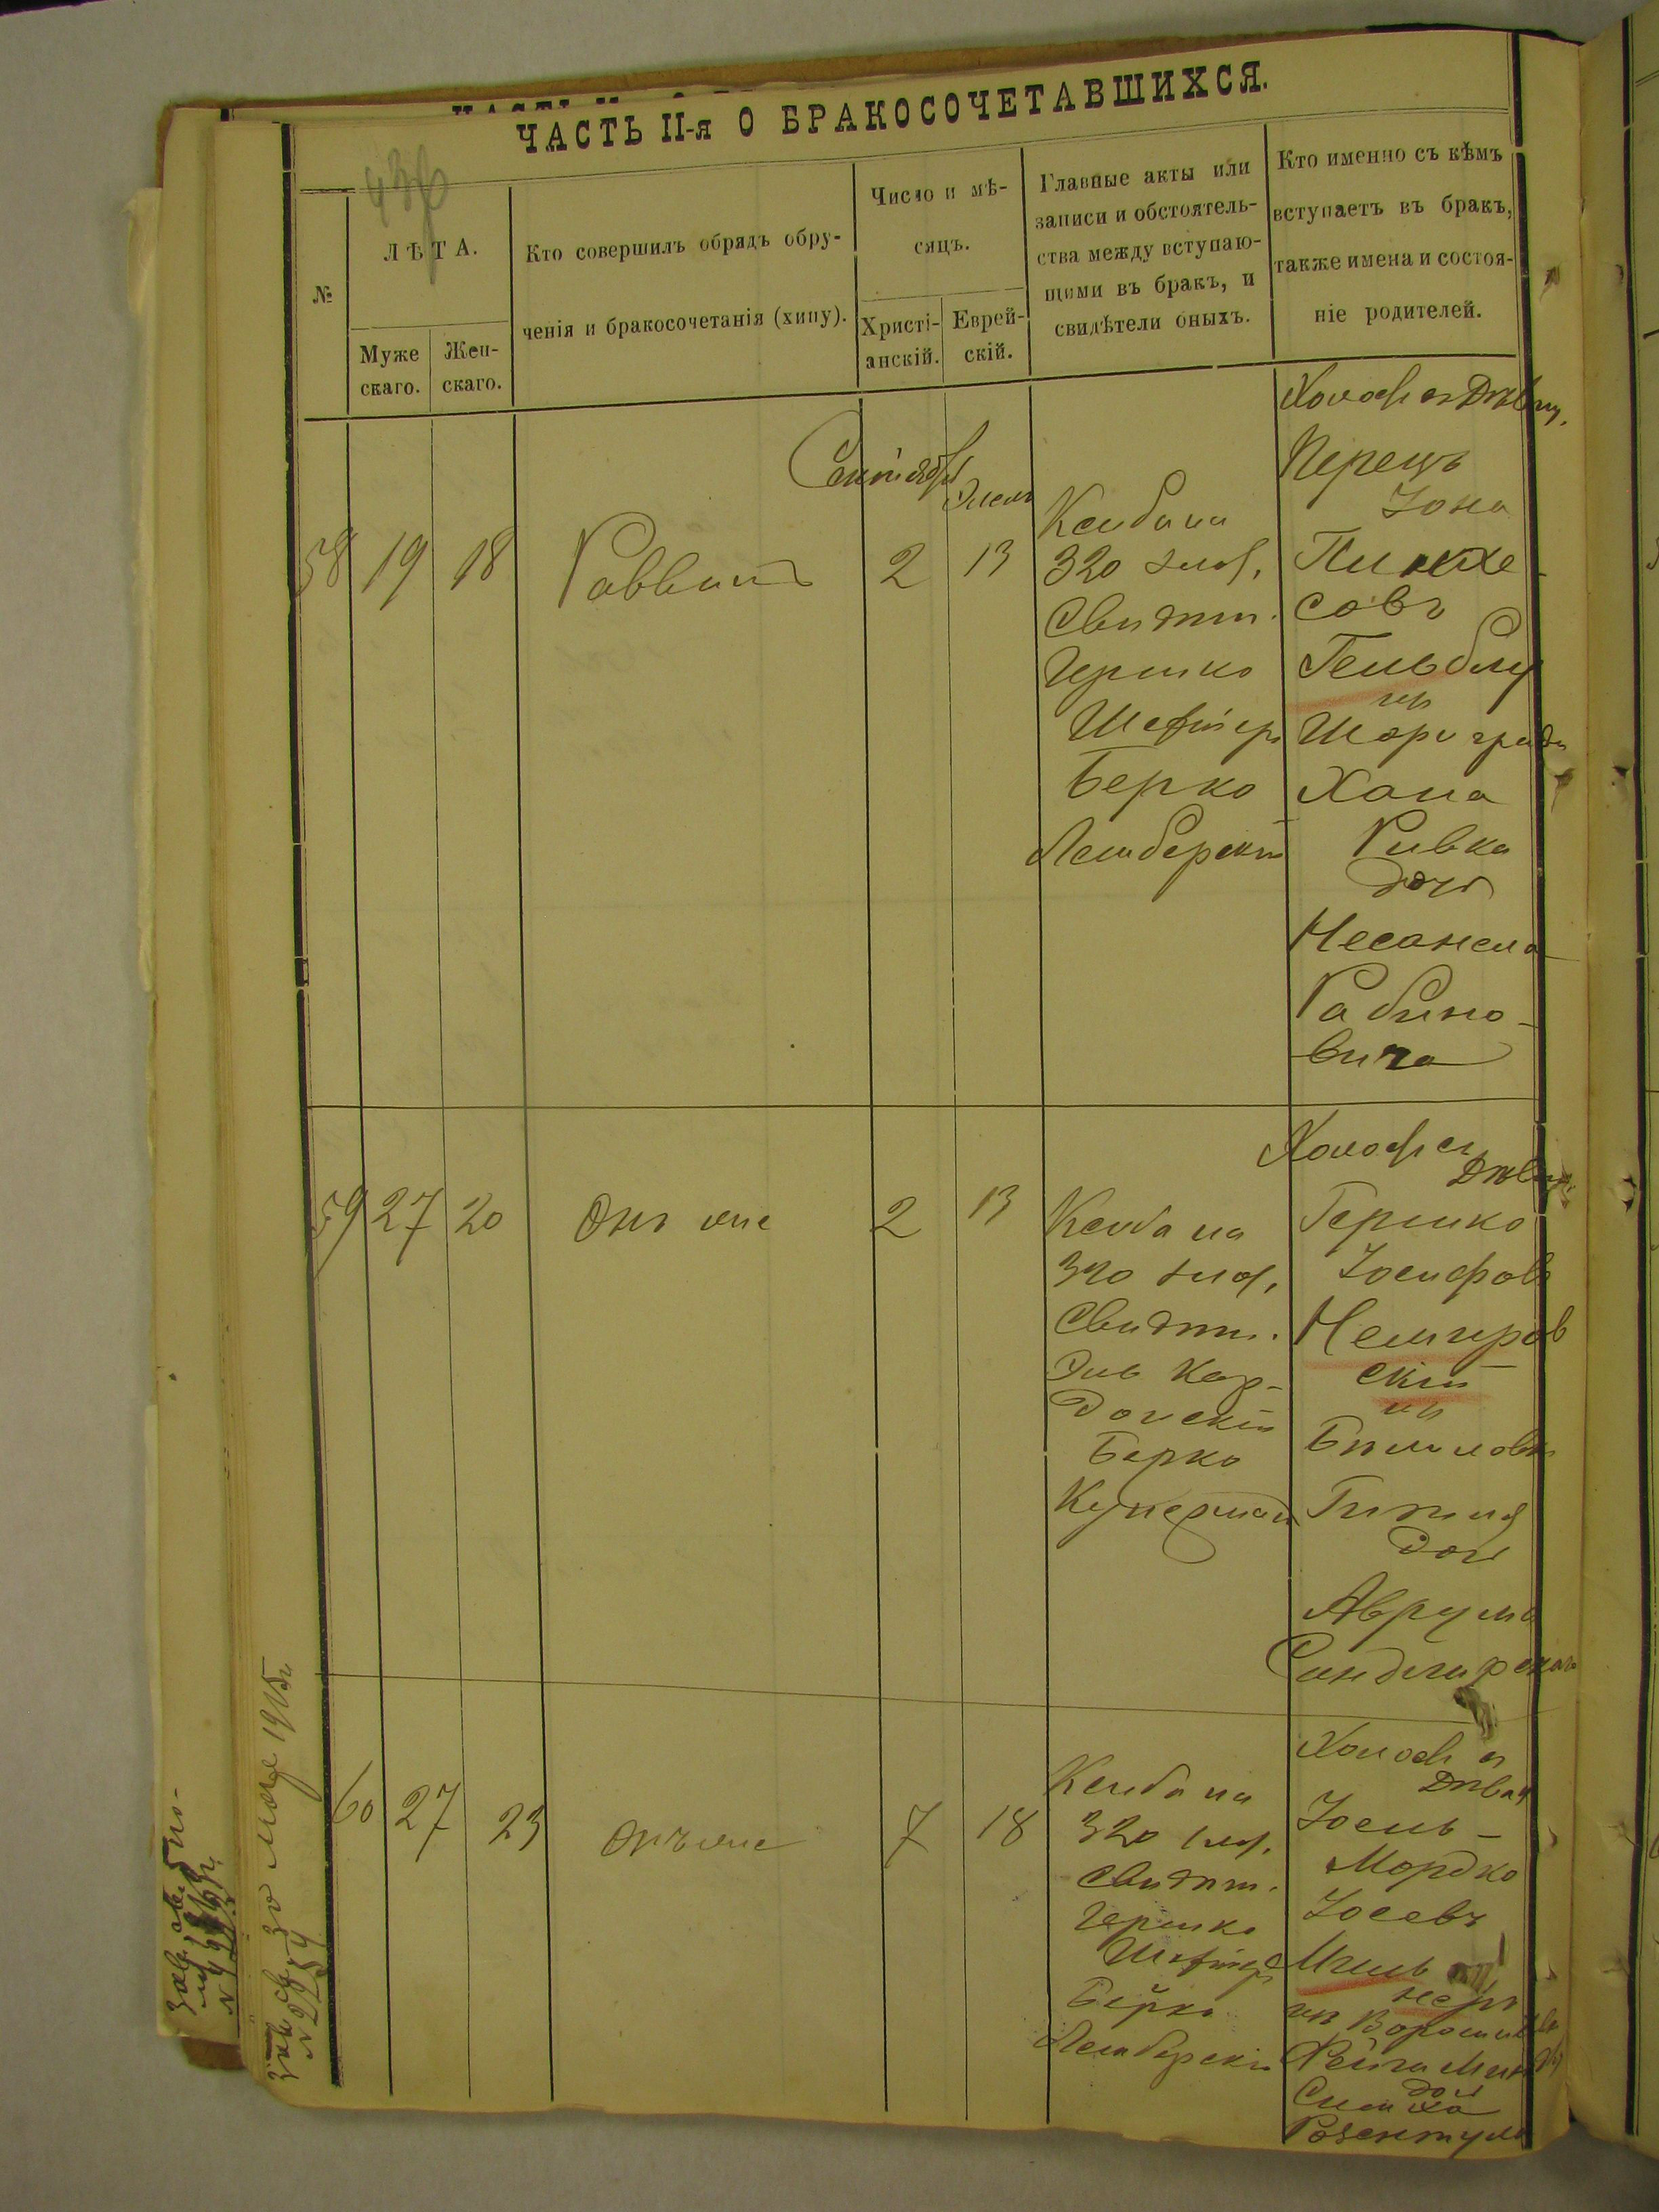 ЧАСТЬ II-я О БРАКОСОЧЕТАВШИХСЯ.
№
ЛѢТА.
Муже
скаго.
Жен-
скаго.
Кто совершилъ обрядъ обру-
ченія и бракосочетанія (хипу).
Число и мѣ-
сяцъ.
Христі-
анскій.
Еврей-
скій.
Главные акты или
записи и обстоятель-
ства между вступаю-
щими въ бракъ, и
свидѣтели оныхъ.
Кто именно съ кѣмъ
вступаетъ въ бракъ,
также имена и состоя-
ніе родителей.
58
19
18
Раввинъ
Сентябрь
2
Элелъ
13
Кеиба на
320 злот.
Свидѣт.
Гершко
Шефтер
Берко
Лемберскій
Холост съ Дѣвиц.
Перецъ
Іона
Пинхе-
совъ
Гельблу
изъ
Шаргорода
Хана
Ривка
дочь
Несанела
Рабино-
вича
59
27
20
Онъ же
2
13
Кеиба на
320 злот.
Свидѣт.
Эль Кор-
донскій
Берко
Куперман
Холост съ
Дѣвиц.
Гершко
Іосифов
Немиров
скій
изъ
Гитля
доч
Аврума
Сандлирскаго
60
27
23
Онъ же
7
18
Кеиба на
320 злот.
Свидѣт.
Гершко
Шефтер
Берко
Лемберскій
Холост съ
Дѣвиц
Іосель-
Мордко
Іосевъ
изъ Ворошиловк
Фейга
доч
Симха
зо мая 1915г.
№ 2254